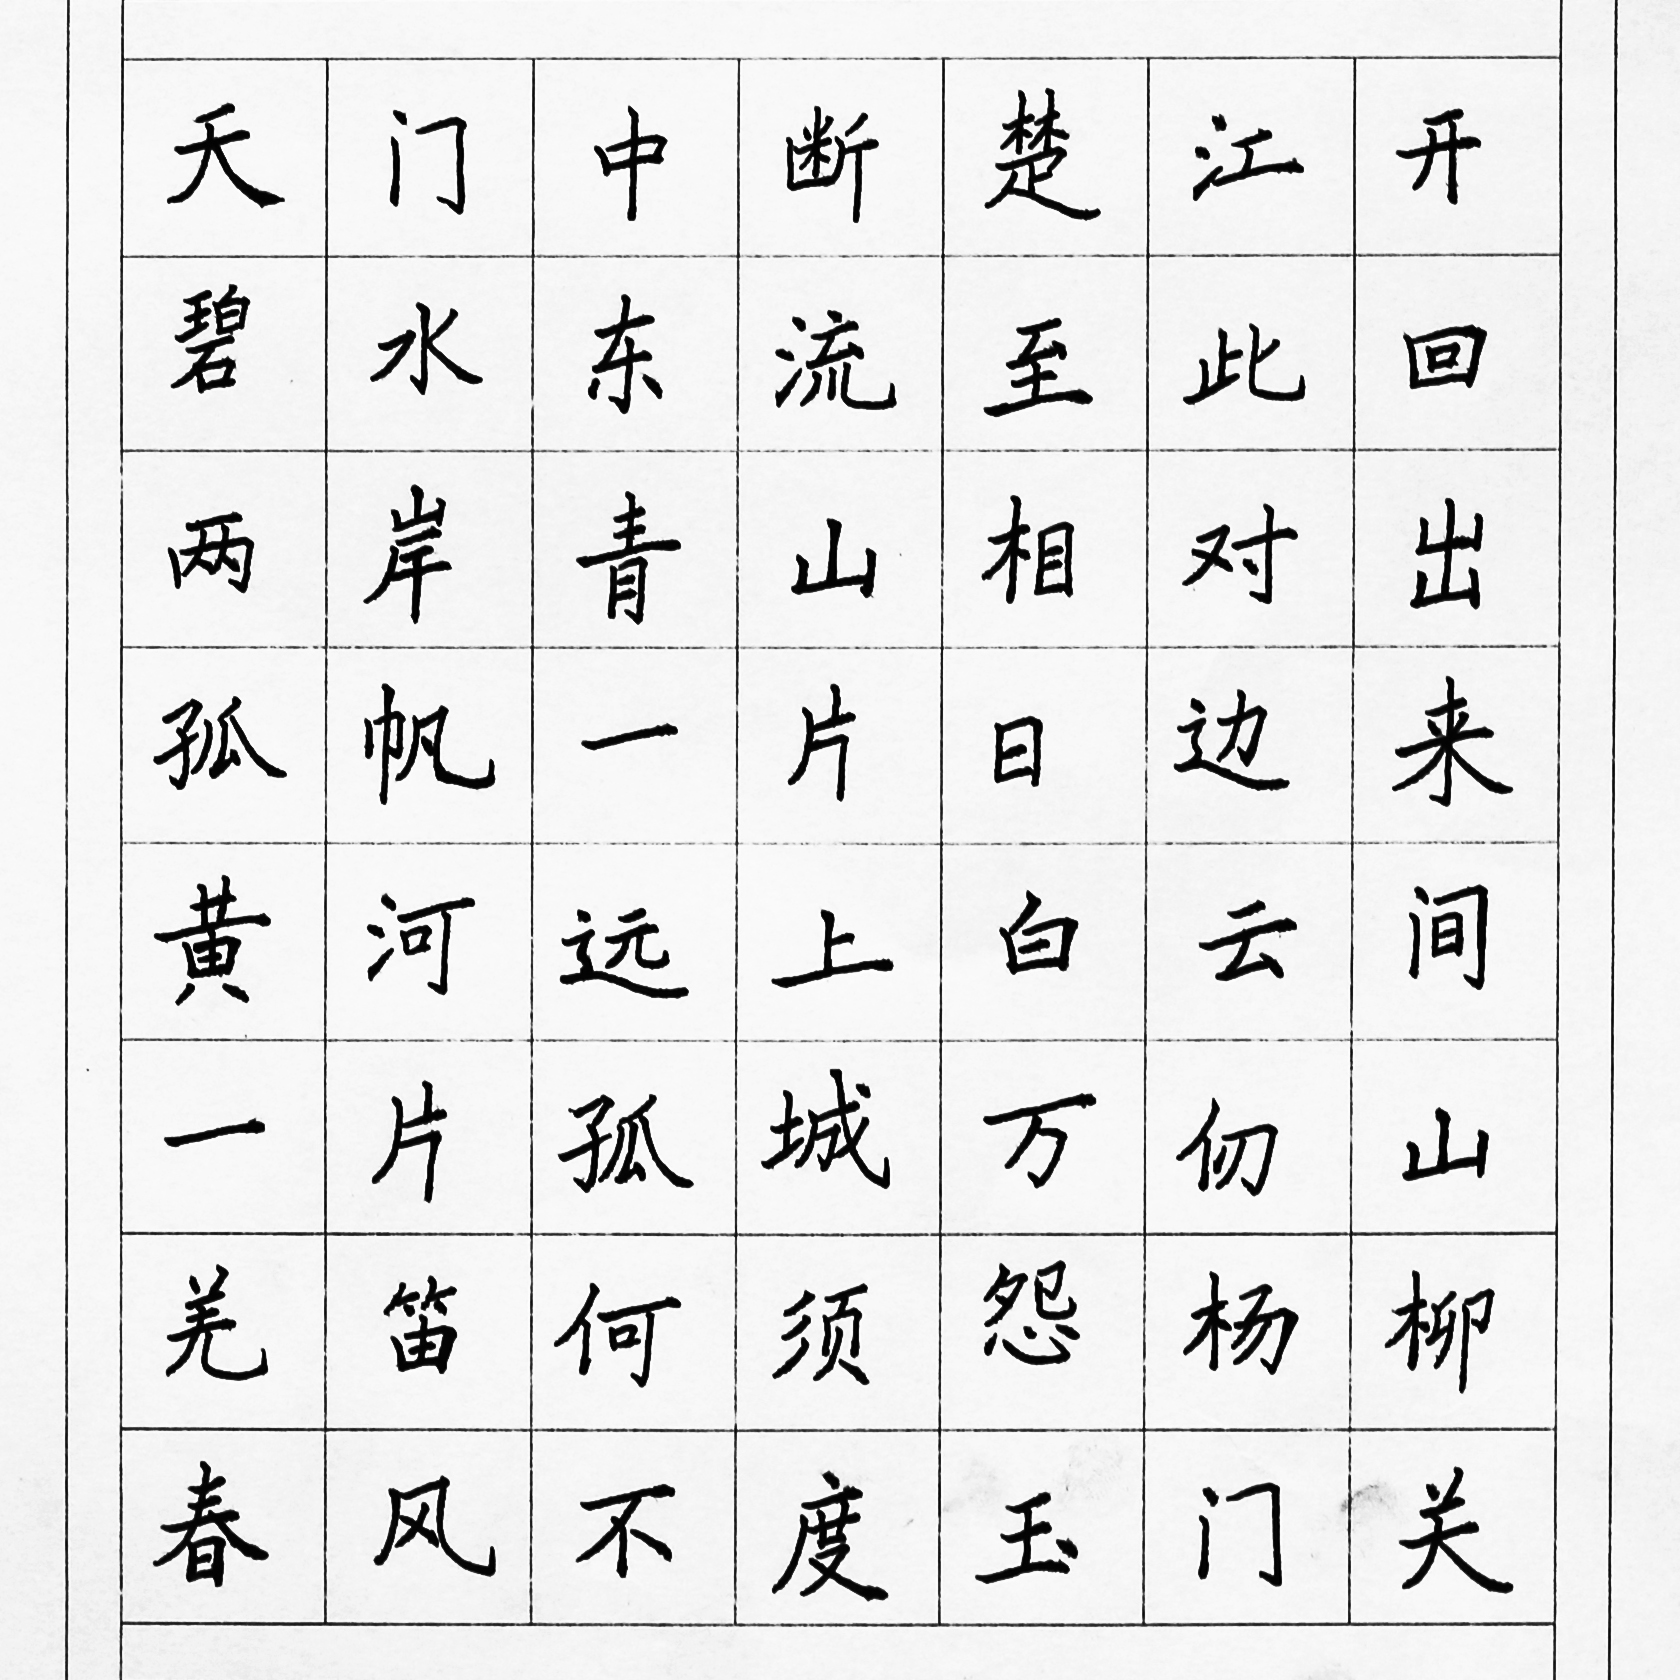 天门中断楚江开
碧水东流至此回
两岸青山相对出
孤帆一片日边来
黄河远上白云间
一片孤城万仞山
羌笛何须怨杨柳
春风不度玉门关